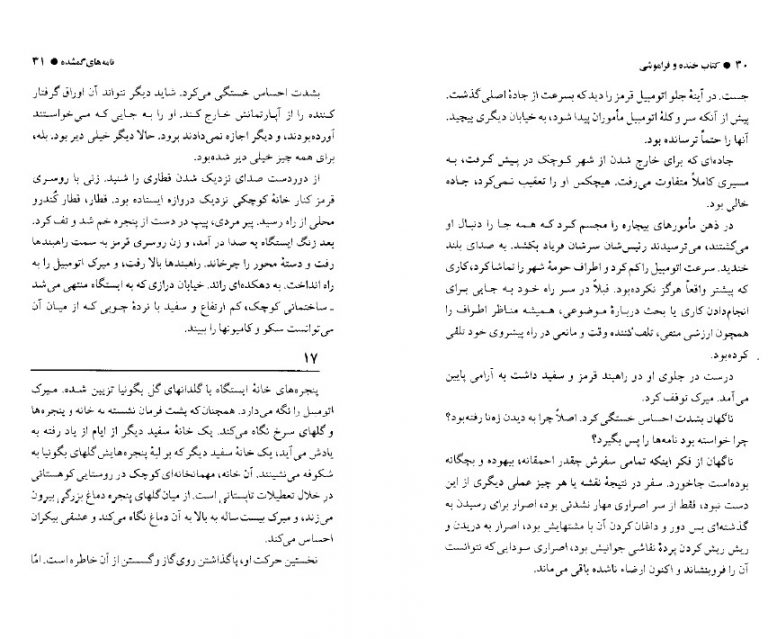 ۳۰ ● کتاب خنده و فراموشی
جست. در آینهٔ جلو اتومبیل قرمز را دید که بسرعت از جادهٔ اصلی گذشت.
پیش از آنکه سر و کلهٔ اتومبیل مأموران پیدا شود، به خیابان دیگری پیچید.
آنها را حتماً ترسانده بود.
جاده‌ای که برای خارج شدن از شهر کوچک در پیش گرفت، به
مسیری کاملاً متفاوت می‌رفت. هیچکس او را تعقیب نمی‌کرد، جاده
خالی بود.
در ذهن مأمورهای بیچاره را مجسم کرد که همه جا را دنبال او
می‌گشتند، می‌ترسیدند رئیس‌شان سرشان فریاد بکشد. به صدای بلند
خندید. سرعت اتومبیل را کم کرد و اطراف حومهٔ شهر را تماشا کرد، کاری
که پیشتر واقعاً هرگز نکرده‌بود. قبلاً در سر راه خود به جایی برای
انجام‌دادن کاری یا بحث دربارهٔ موضوعی، همیشه مناظر اطراف را
همچون ارزشی منفی، تلف‌کننده وقت و مانعی در راه پیشروی خود تلقی
کرده‌بود.
درست در جلوی او دو راهبند قرمز و سفید داشت به آرامی پایین
می‌آمد. میرک توقف کرد.
ناگهان بشدت احساس خستگی کرد. اصلاً چرا به دیدن زدنا رفته‌بود؟
چرا خواسته بود نامه‌ها را پس بگیرد؟
ناگهان از فکر اینکه تمامی سفرش چقدر احمقانه، بیهوده و بچگانه
بوده‌است جاخورد. سفر در نتیجهٔ نقشه یا هر چیز عملی دیگری از این
دست نبود، فقط از سر اصراری مهار نشدنی بود، اصرار برای رسیدن به
گذشته‌ای بس دور و داغان کردن آن با مشتهایش بود، اصرار به دریدن و
ریش ریش کردن پردهٔ نقاشی جوانیش بود، اصراری سودایی که نتوانست
آن را فروبنشاند و اکنون ارضاء ناشده باقی می‌ماند.
نامه‌های گمشده ● ۳۱
بشدت احساس خستگی می‌کرد. شاید دیگر نتواند آن اوراق گرفتار
کننده را از آپارتمانش خارج کند. او را به جایی که می‌خواستند
آورده‌بودند، و دیگر اجازه نمی‌دادند برود. حالا دیگر خیلی دیر بود. بله،
برای همه چیز خیلی دیر شده‌بود.
از دوردست صدای نزدیک شدن قطاری را شنید. زنی با روسری
قرمز کنار خانهٔ کوچکی نزدیک دروازه ایستاده بود. قطار، قطار کُندرو
محلی از راه رسید. پیر مردی، پیپ در دست از پنجره خم شد و تف کرد.
بعد زنگ ایستگاه به صدا در آمد، و زن روسری قرمز به سمت راهبندها
رفت و دستهٔ محور را چرخاند. راهبندها بالا رفت، و میرک اتومبیل را به
راه انداخت. به دهکده‌ای راند. خیابان درازی که به ایستگاه منتهی می‌شد
ـ ساختمانی کوچک، کم ارتفاع و سفید با نردهٔ چوبی که از میان آن
می‌توانست سکو و کامیونها را ببیند.
۱۷
پنجره‌های خانهٔ ایستگاه با گلدانهای گل بگونیا تزیین شده. میرک
اتومبیل را نگه می‌دارد. همچنان‌که پشت فرمان نشسته به خانه و پنجره‌ها
و گلهای سرخ نگاه می‌کند. یک خانهٔ سفید دیگر از ایام از یاد رفته به
یادش می‌آید، یک خانهٔ سفید دیگر که بر لبهٔ پنجره‌هایش گلهای بگونیا به
شکوفه می‌نشینند. آن خانه، مهمانخانه‌ای کوچک در روستایی کوهستانی
در خلال تعطیلات تابستانی است. از میان گلهای پنجره دماغ بزرگی بیرون
می‌زند، و میرک بیست‌ساله به بالا به آن دماغ نگاه می‌کند و عشقی بیکران
احساس می‌کند.
نخستین حرکت او، پاگذاشتن روی گاز و گسستن از آن خاطره است. امّا